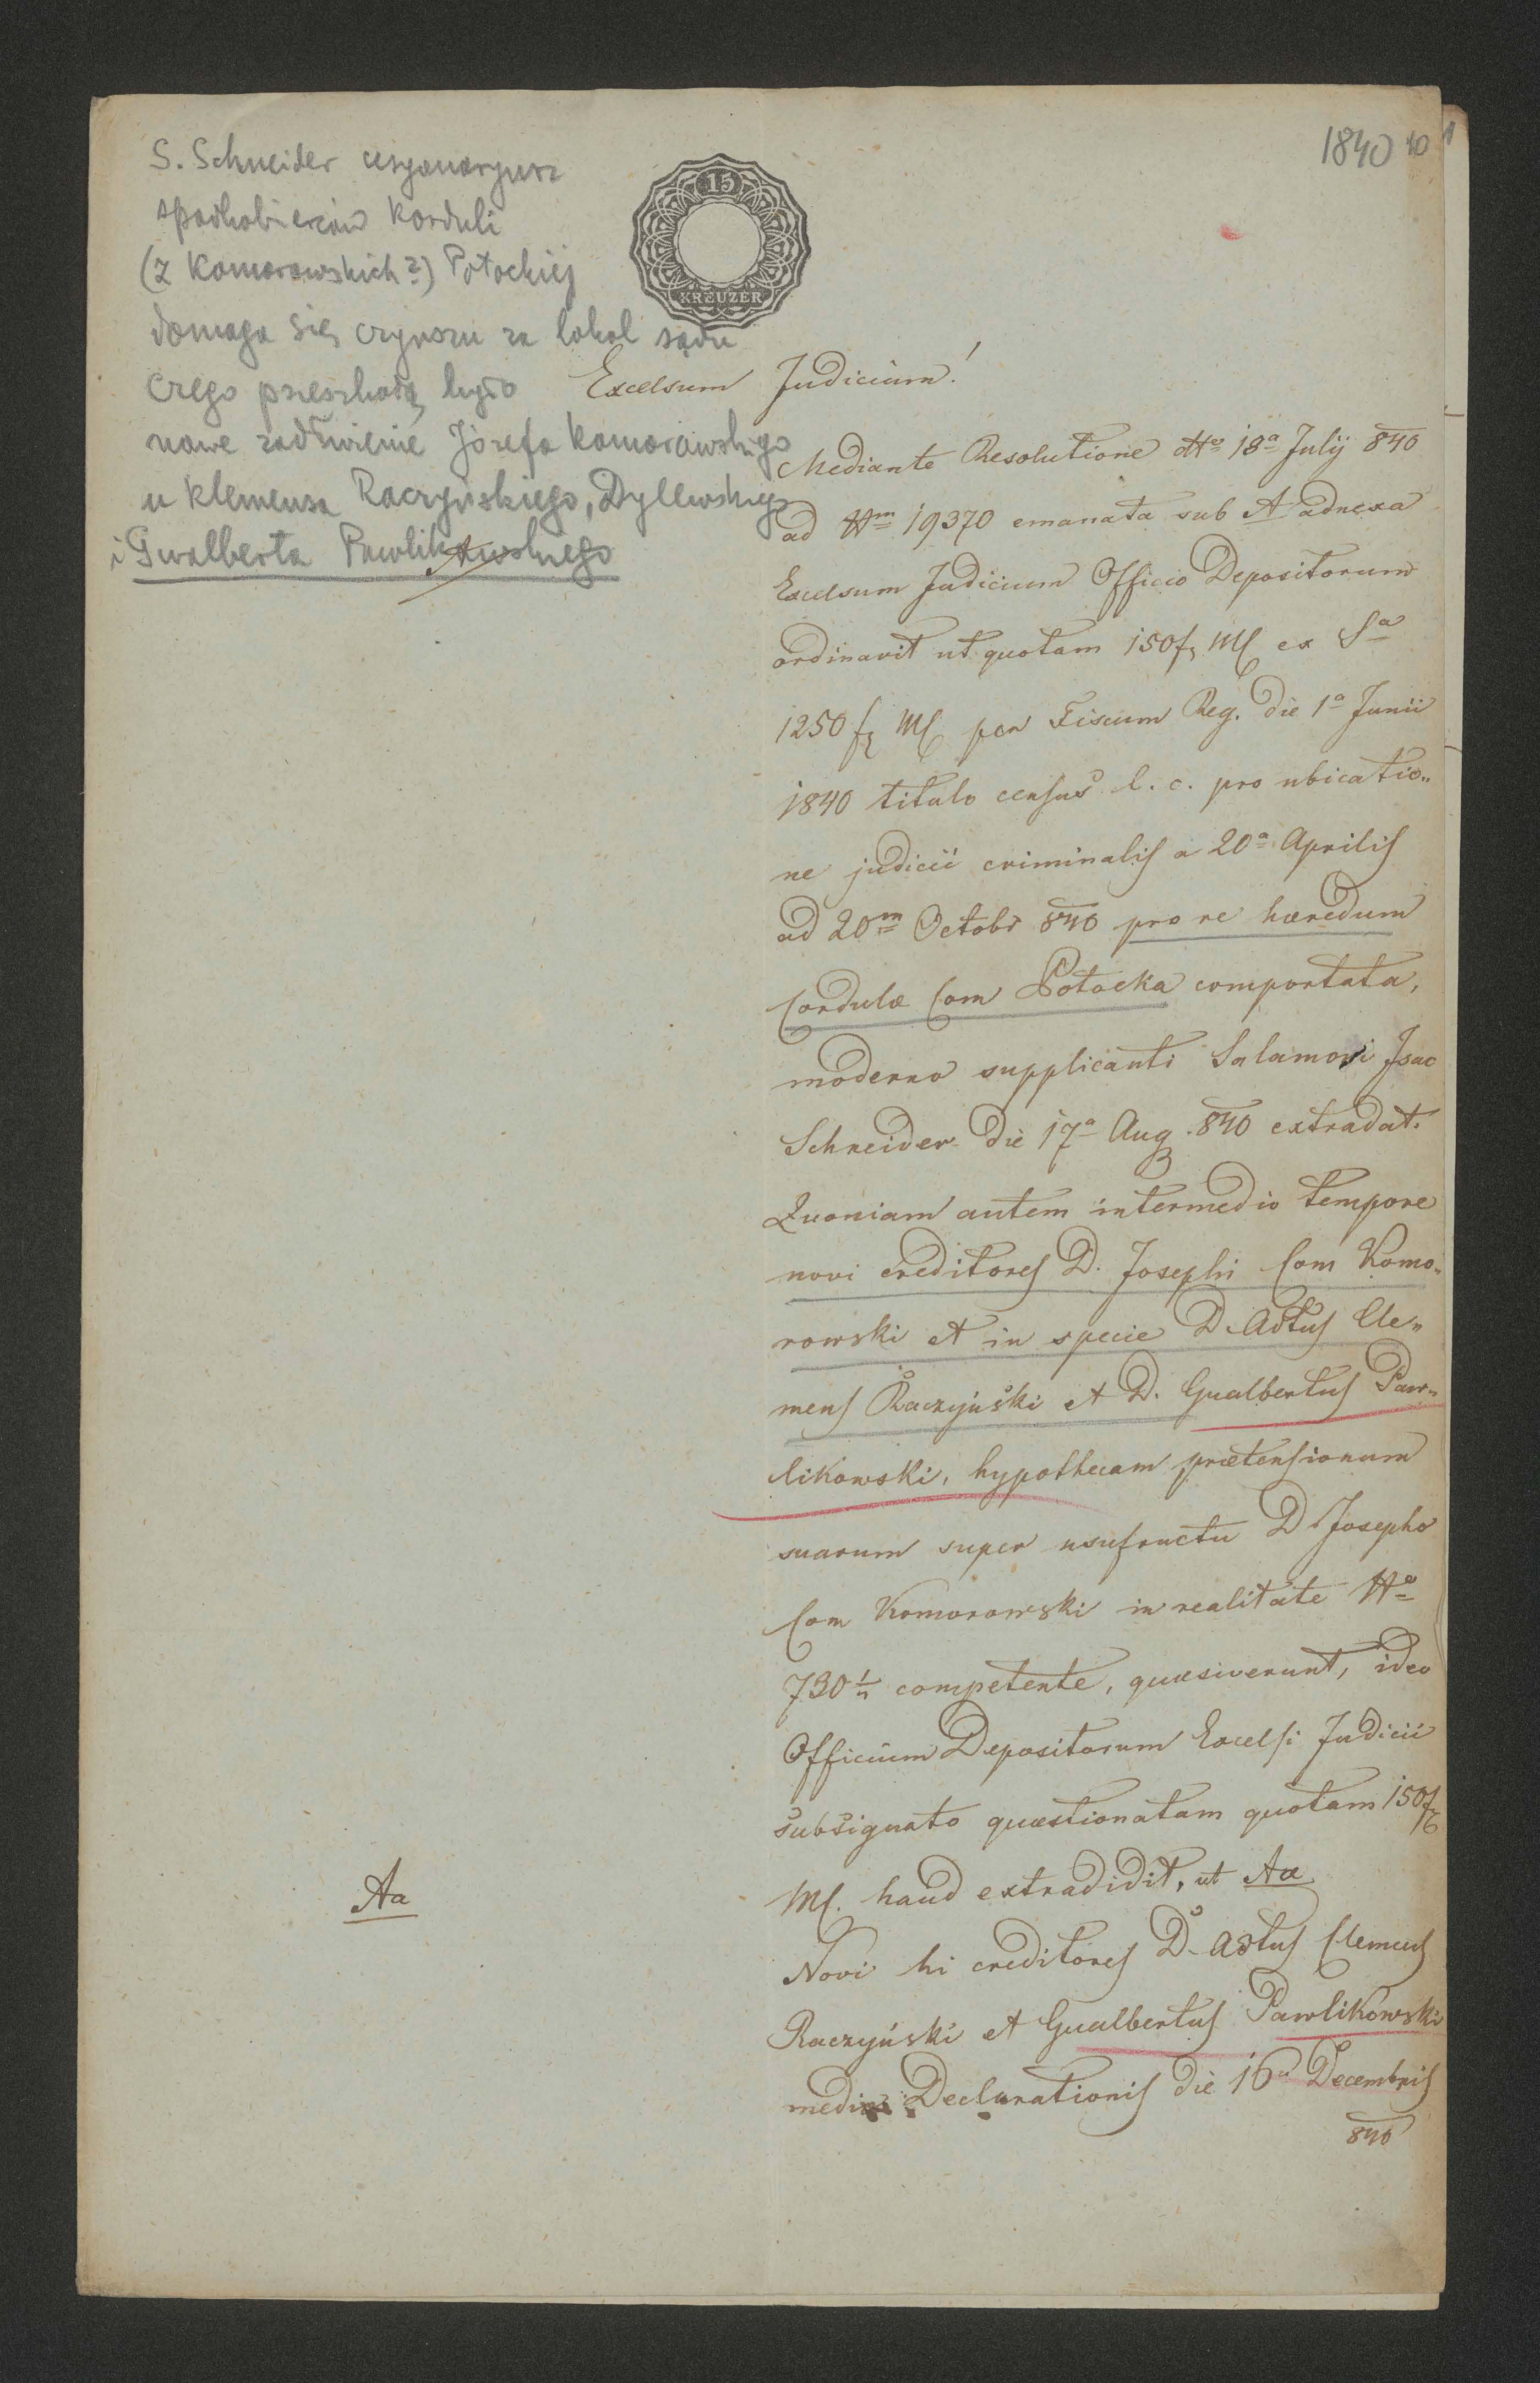 1840 10
S. Schneider cesyonaryusz
spadkobierców Korduli
(z Komorowskich?) Potockiej
domaga się czynszu za lokal sądu
czego przeszkodą było
nowe zadłużenie Józefa Komorowskiego
u Klemensa Raczyńskiego, Dyllewskiego
i Gwalberta Pawlikowskiego
15
KREUZER
Excelsum Judicium!
Mediante Resolutione dtto 18a Julij 840
ad Nm 19370 emanata sub A adnexa
Excelsum Judicium Officio Depositorum
ordinavit ut quotam 150 fr MC ex Sa
1250 fr MC per Fiscum Reg. die 1a Junii
1840 titulo census l. c. pro ubicatio„
ne judicii criminalis a 20a Aprilis
ad 20m Octobr 840 pro re hæredum
Cordulæ Com Potocka comportata,
moderno supplicanti Salamoni Isac
Schneider die 17a Aug. 840 extradat.
Quoniam autem intermedio tempore
novi creditores D. Josephi Com Komo„
rowski et in specie D. Adtus Cle„
mens Raczyński et D. Gualbertus Paw„
likowski, hypothecam prætensionum
suarum super usufructu D Josepho
Com Komorowski in realitate No
730 1/4 competente, quæsiverunt, ideo
Officium Depositorum Excelsi Judicii
subsignato quæstionatam quotam 150 fr
MC. haud extradidit, ut Aa
Aa
Novi hi creditores D. Adtus Clemens
Raczyński et Gualbertus Pawlikowski
medio Declarationis die 16a Decembris
840